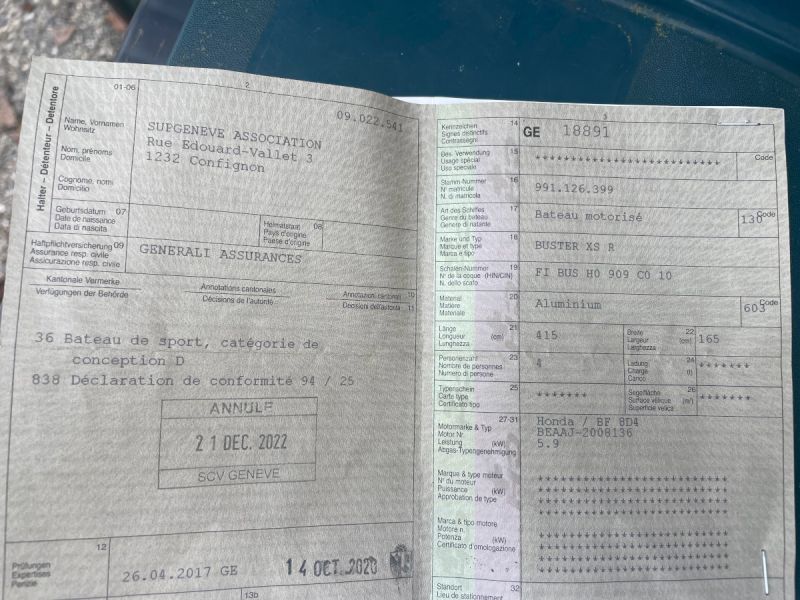 01-06
2
09.022.541
Halter – Détenteur – Detentore
Name, Vornamen
Wohnsitz
Nom, prénoms
Domicile
Cognome, nomi
Domicilio
SUPGENEVE ASSOCIATION
Rue Edouard-Vallet 3
1232 Confignon
Geburtsdatum 07
Date de naissance
Data di nascita
Heimatstaat 08
Pays d'origine
Paese d'origine
Haftpflichtversicherung 09
Assurance resp. civile
Assicurazione resp. civile
GENERALI ASSURANCES
Kantonale Vermerke
Annotations cantonales
Annotazioni cantonali 10
Verfügungen der Behörde
Décisions de l'autorité
Decisioni dell'autorità 11
36 Bateau de sport, catégorie de
conception D
838 Déclaration de conformité 94 / 25
ANNULE
21 DEC. 2022
SCV GENEVE
12
Prüfungen
Expertises
Perizie
26.04.2017 GE
14 OCT. 2020
13b
3
Kennzeichen 14
Signes distinctifs
Contrassegni
GE 18891
Bes. Verwendung 15
Usage spécial
Uso speciale
***************************
Code
Stamm-Nummer 16
N° matricule
N. di matricola
991.126.399
Art des Schiffes 17
Genre du bateau
Genere di natante
Bateau motorisé
Code
130
Marke und Typ 18
Marque et type
Marca e tipo
BUSTER XS R
Schalen-Nummer 19
N° de la coque (HIN/CIN)
N. dello scafo
FI BUS H0 909 C0 10
Material 20
Matière
Materiale
Aluminium
Code
603
Länge 21
Longueur (cm)
Lunghezza
415
Breite 22
Largeur (cm)
Larghezza
165
Personenzahl 23
Nombre de personnes
Numero di persone
4
Ladung 24
Charge (t)
Carico
*******
Typenschein 25
Carte type
Certificato tipo
*******
Segelfläche 26
Surface vélique (m²)
Superficie velica
*******
27-31
Motormarke & Typ
Motor Nr.
Leistung (kW)
Abgas-Typengenehmigung
Honda / BF 8D4
BEAAJ-2008136
5.9
Marque & type moteur
N° du moteur
Puissance (kW)
Approbation de type
***************************
***************************
***************************
***************************
Marca & tipo motore
Motore n.
Potenza (kW)
Certificato d'omologazione
***************************
***************************
***************************
***************************
Standort 32
Lieu de stationnement